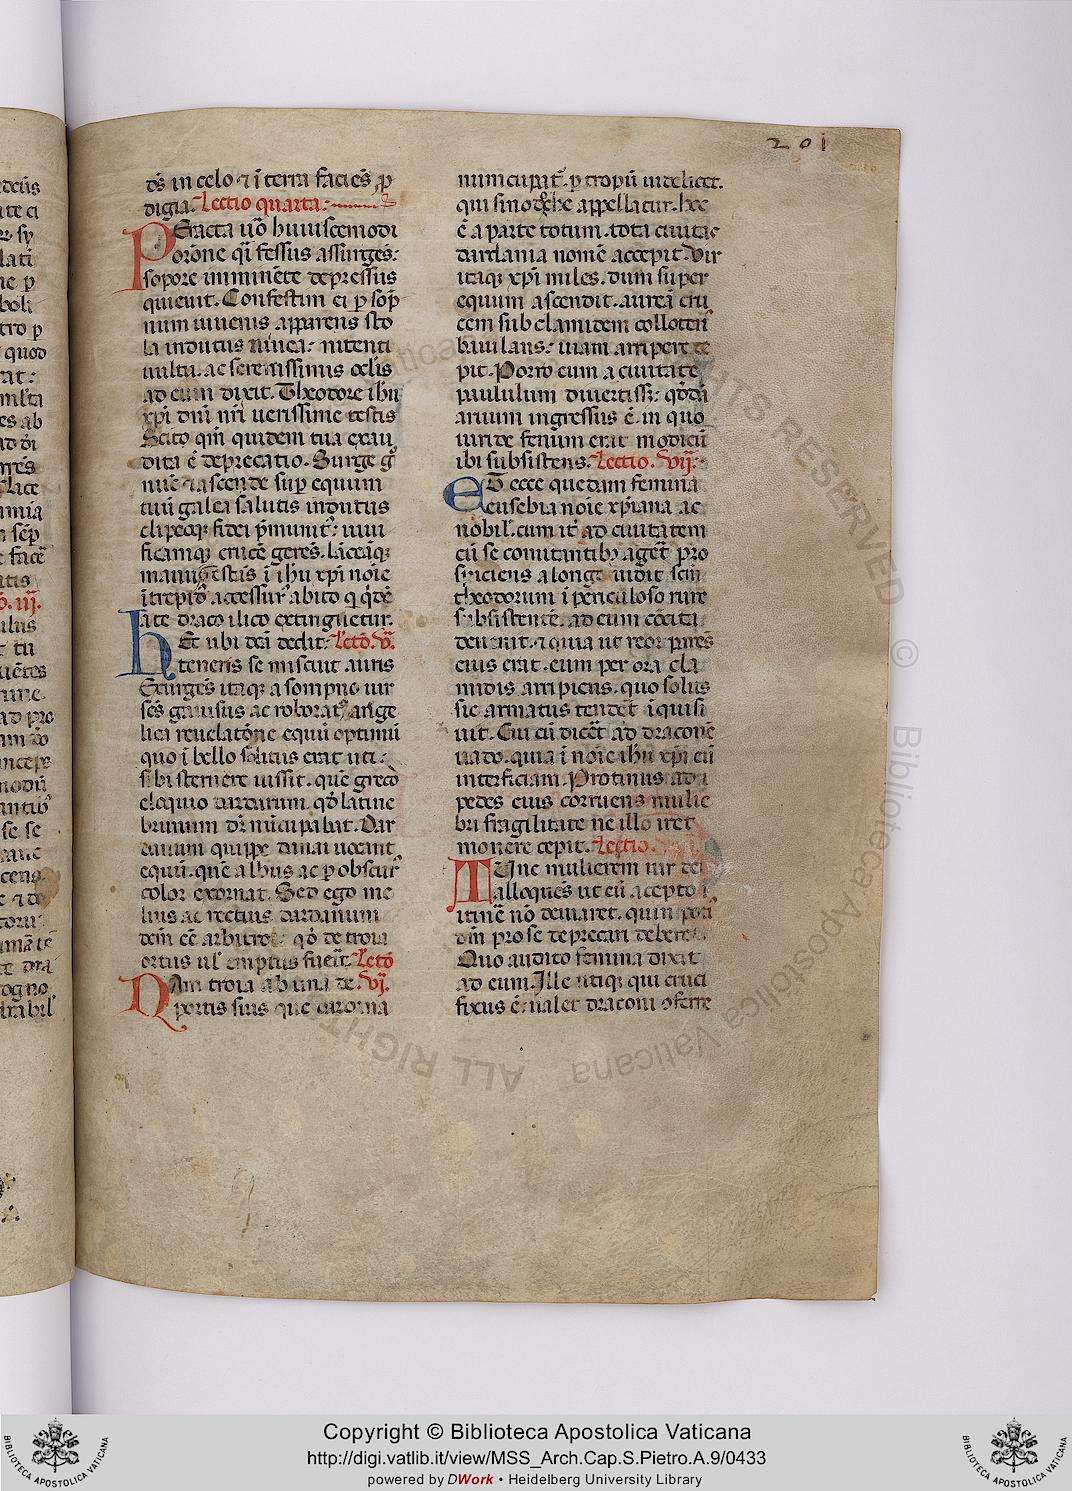 201
ds̄ in celo ⁊ ī terra facies̄ ꝓ
digia. Lectio quarta:
PEracta uō huiuscemodi
orōne qī fessus assurges̄:
sopore imminēte depressus
quieuit. Confestim ei ꝑ sop̄
num iuuenis apparens sto
la indutus niuea: nitenti
uultu. ac serenissimis oclīs
ad eum dixit. Theodore ih̄u
xp̄i dn̄i nr̄i uerissime testis
Scito qm̄ quidem tua exau
dita ē deprecatio. Surge g̊
nūc ⁊ ascende sup̄ equum
tuū galea salutis indutus
clipeoqꝫ fidei p̄munit᷒: uiui
ficamqꝫ crucē geres̄. lāceāqꝫ
manu gestās ī ih̄u xp̄i noīe
ītrepid᷒ accessur᷒ abito q qd̄ē
hāte draco ilico extinguetur.
HEc ubi dc̄a dedit: Lctō. V̄.
teneris se miscuit auris
Exurges̄ itaqꝫ a sompno uir
scs̄ gauisus ac roborat᷒ ange
lica reuelatōne equū optimū
quo ī bello solitus erat uti:
sibi sternere iussit. quē greco
eloquio dardarum. qd̄ latine
brunum dr̄ nūcupabat. Dar
danum quippe danai uocant
equū. quē albus ac ꝑobscur᷒
color exornat. Sed ego me
lius ac rectius dardanum
dem̄ eē arbitror: qd̄ de troia
ortus ul̄ emptus fuerit. Lctō
NAm troia ab una de VI.
portis suis que dardana
nuncupat᷒. ꝓ tropū uidelicet.
qui sinodoche appellatur. hoc
ē a parte totum. tota ciuitas
dardania nomē accepit. Vir
itaqꝫ xp̄i miles. dum super
equum ascendit. aureā cru
cem sub clamidem collotenꝰ
baiulans: uiam arripere ce
pit. Porro cum a ciuitate
paululum diuertiss: qd̄dā
aruum ingressus ē. in quo
uiride fenum erat modicū
ibi subsistens. Lectio. VII.
ET ecce quedam femina
eusebia noīe xp̄iana ac
nobil̄. cum it᷒ ad ciuitatem
cū se comitantibꝫ aget᷒ pro
spiciens a longe uidit scm̄
theodorum ī periculoso rure
subsistentē. ad eum cōcita
deuenit. ⁊ quia ut reor pares̄
eius erat. eum per ora cla
midis arripiens. quo solus
sic armatus tendet᷒ īquisi
uit. Cui cū dicet᷒ ad draconē
uado. quia ī noīe ih̄u xp̄i eū
interficiam. Protinus ad
pedes eius corruens mulie
bri fragilitate ne illo iret
monere cepit. Lectio.
TUnc mulierem uir dei
alloques̄ ut eū acepto ī
itinē nō deuiaret. quin poti᷒
dm̄ pro se deprecari deberet.
Quo audito femina dixit
ad eum. Ille utiqꝫ qui cruci
fixus ē: ualet draconi ꝯferre
ALL RIGHTS RESERVED © Biblioteca Apostolica Vaticana
BIBLIOTECA APOSTOLICA VATICANA
Copyright © Biblioteca Apostolica Vaticana
http://digi.vatlib.it/view/MSS_Arch.Cap.S.Pietro.A.9/0433
powered by DWork • Heidelberg University Library
BIBLIOTECA APOSTOLICA VATICANA